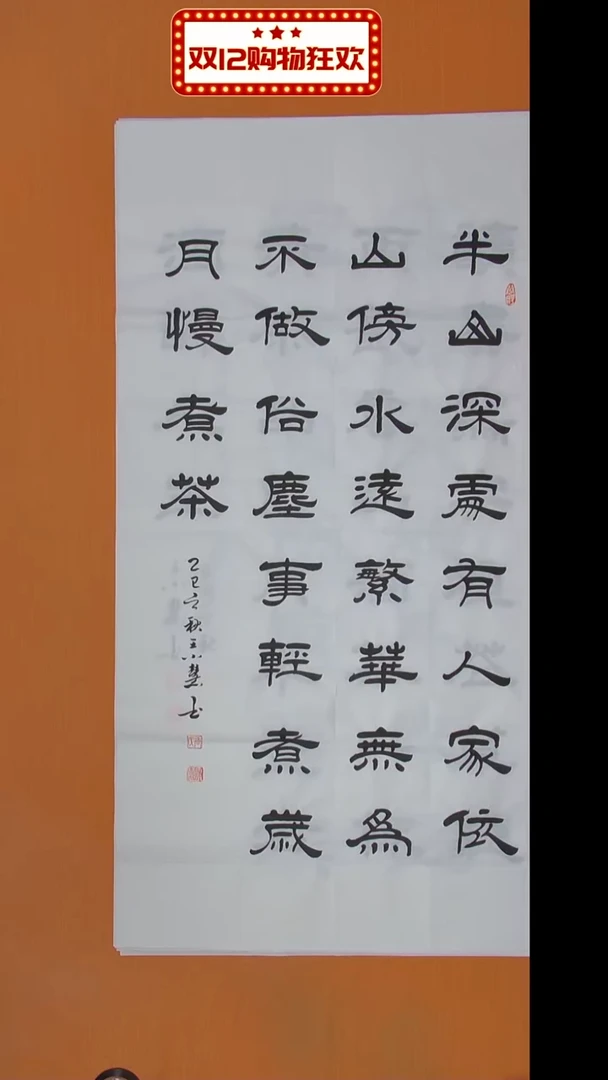 双12购物狂欢
半山深處有人家依
山傍水遠繁華無爲
不做俗塵事輕煮歲
月慢煮茶
乙巳之秋王小慧书